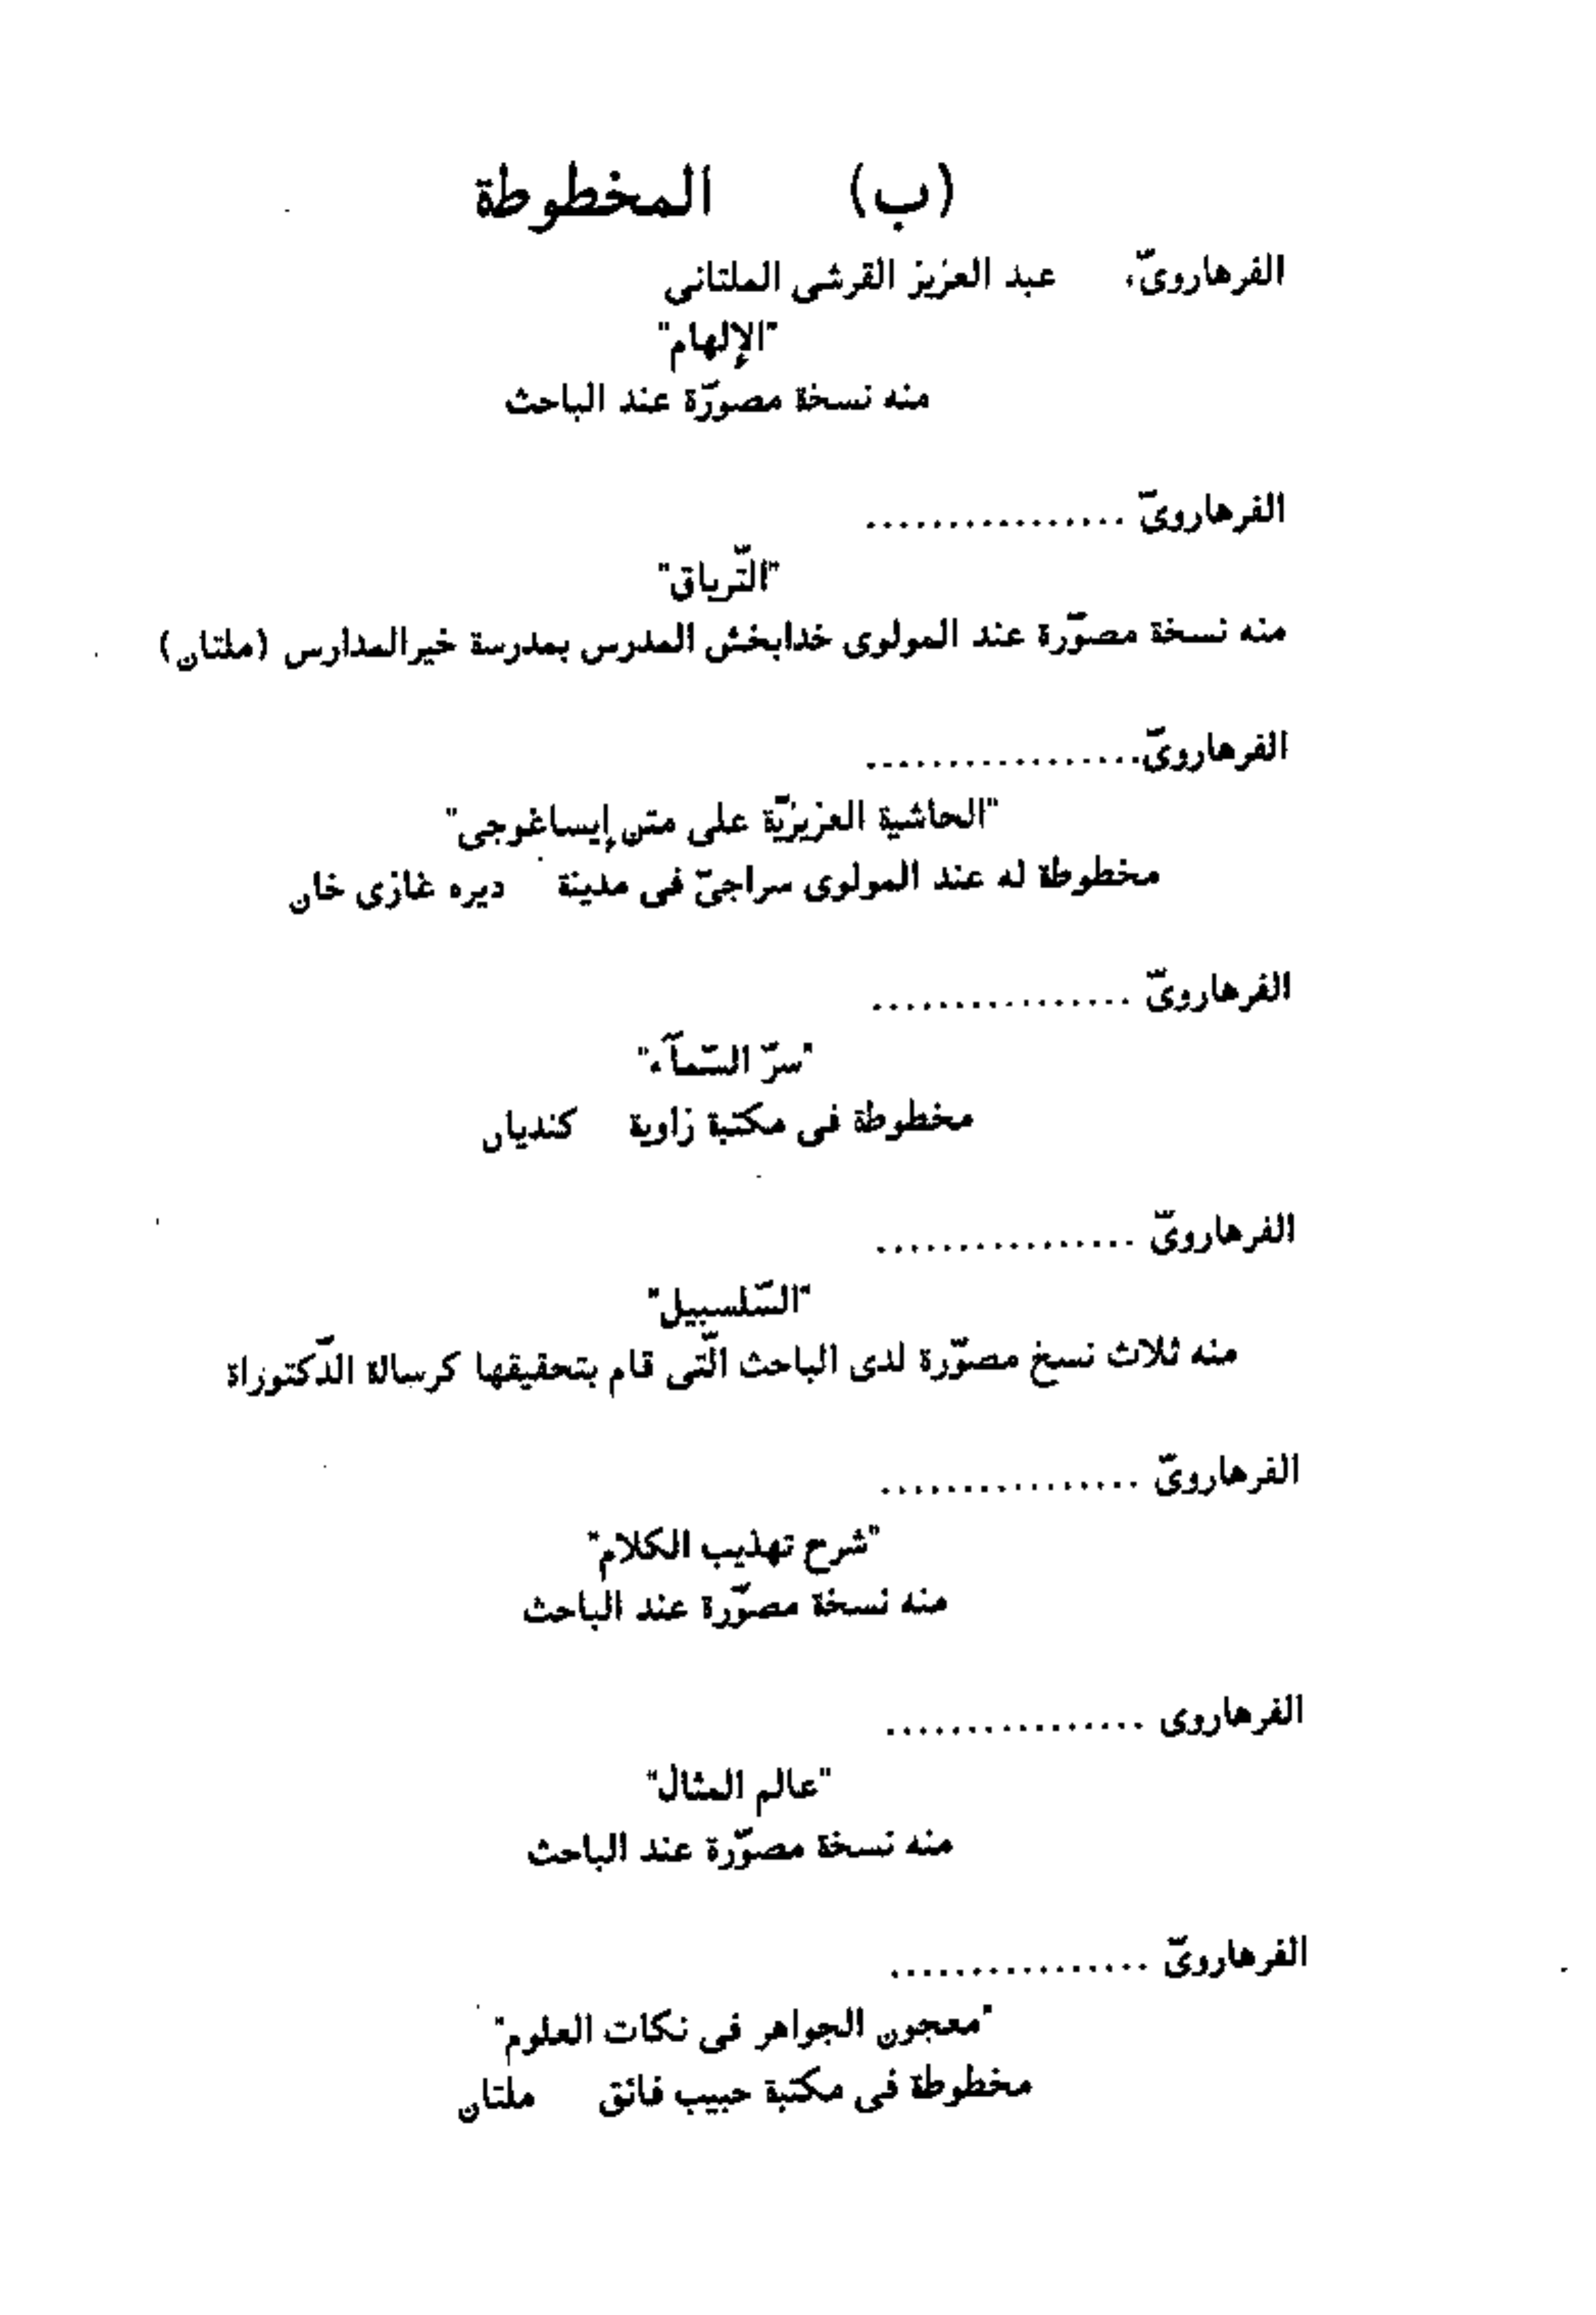 (ب) المخطوطة
الفرهارویّ، عبد العزيز القرشی الملتانی
"الإلهام"
منه نسخة مصوّرة عند الباحث
الفرهارویّ ................
"التّرياق"
منه نسخة مصوّرة عند المولوی خدابخش المدرس بمدرسة خيرالمدارس (ملتان)
الفرهارویّ.................
"الحاشية العزيزيّة على متن إيساغوجی"
مخطوطة له عند المولوی سراجیّ فی مدينة ديره غازی خان
الفرهارویّ ................
"سرّ السّمآء"
مخطوطة فی مكتبة زاوية كنديان
الفرهارویّ ................
"السّلسبيل"
منه ثلاث نسخ مصوّرة لدی الباحث الّتی قام بتحقيقها كرسالة الدّكتوزاة
الفرهارویّ ................
"شرح تهذيب الكلام"
منه نسخة مصوّرة عند الباحث
الفرهاروی ................
"عالم المثال"
منه نسخة مصوّرة عند الباحث
الفرهارویّ ................
"معجون الجواهر فی نكات العلوم"
مخطوطة فی مكتبة حبيب فائق ملتان